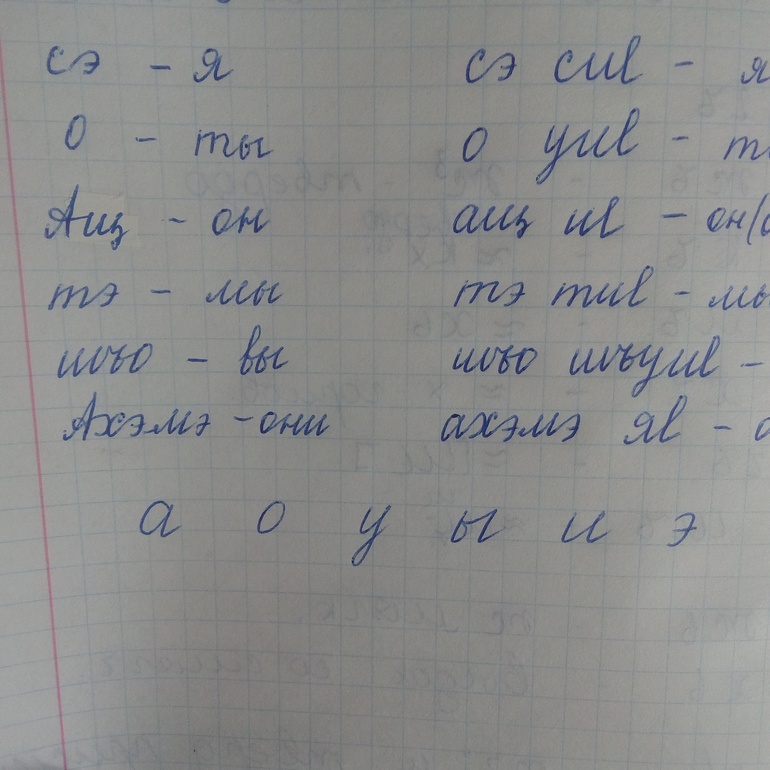 сэ - я сэ сиӏ - я
о - ты о уиӏ -
Ащ - он ащ иӏ - он
тэ - мы тэ тиӏ - мы
шъо - вы шъо шъуиӏ -
Ахэмэ - они ахэмэ яӏ -
а о у ы и э